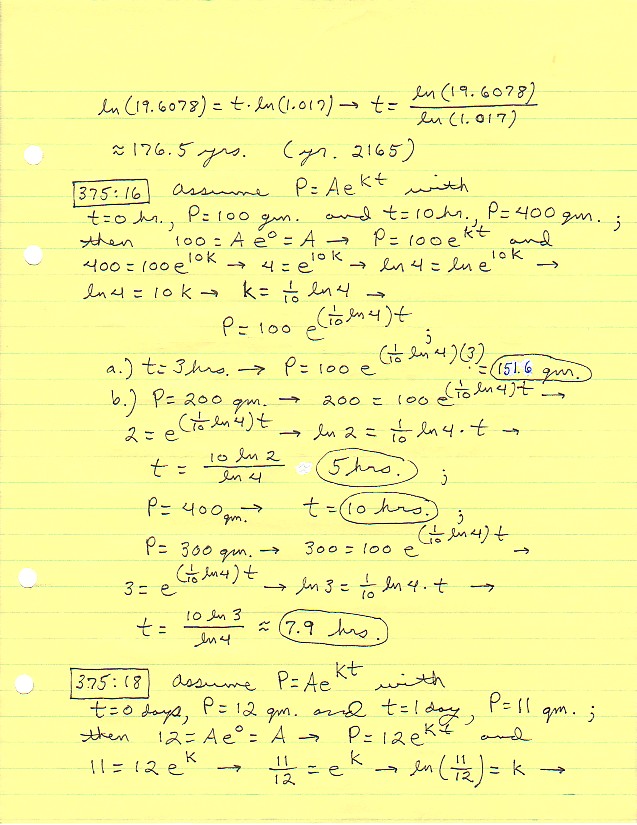 ln(19.6078) = t·ln(1.017) → t = ln(19.6078)/ln(1.017)
≈ 176.5 yrs. (yr. 2165)
375:16 assume P = Ae^{Kt} with
t=0 hr., P=100 gm. and t=10 hr., P=400 gm. ;
then 100 = Ae^0 = A → P = 100e^{kt} and
400 = 100e^{10K} → 4 = e^{10K} → ln 4 = ln e^{10K} →
ln 4 = 10K → K = 1/10 ln 4 →
P = 100 e^{(1/10 ln 4)t} ;
a.) t = 3 hrs. → P = 100 e^{(1/10 ln 4)(3)} = 151.6 gm.
b.) P = 200 gm. → 200 = 100e^{(1/10 ln 4)t} →
2 = e^{(1/10 ln 4)t} → ln 2 = 1/10 ln 4 · t →
t = 10 ln 2/ln 4 = 5 hrs. ;
P = 400 gm. → t = 10 hrs. ;
P = 300 gm. → 300 = 100 e^{(1/10 ln 4)t} →
3 = e^{(1/10 ln 4)t} → ln 3 = 1/10 ln 4 · t →
t = 10 ln 3/ln 4 ≈ 7.9 hrs.
375:18 assume P = Ae^{Kt} with
t=0 days, P=12 gm. and t=1 day, P=11 gm. ;
then 12 = Ae^0 = A → P = 12e^{Kt} and
11 = 12e^K → 11/12 = e^K → ln(11/12) = K →